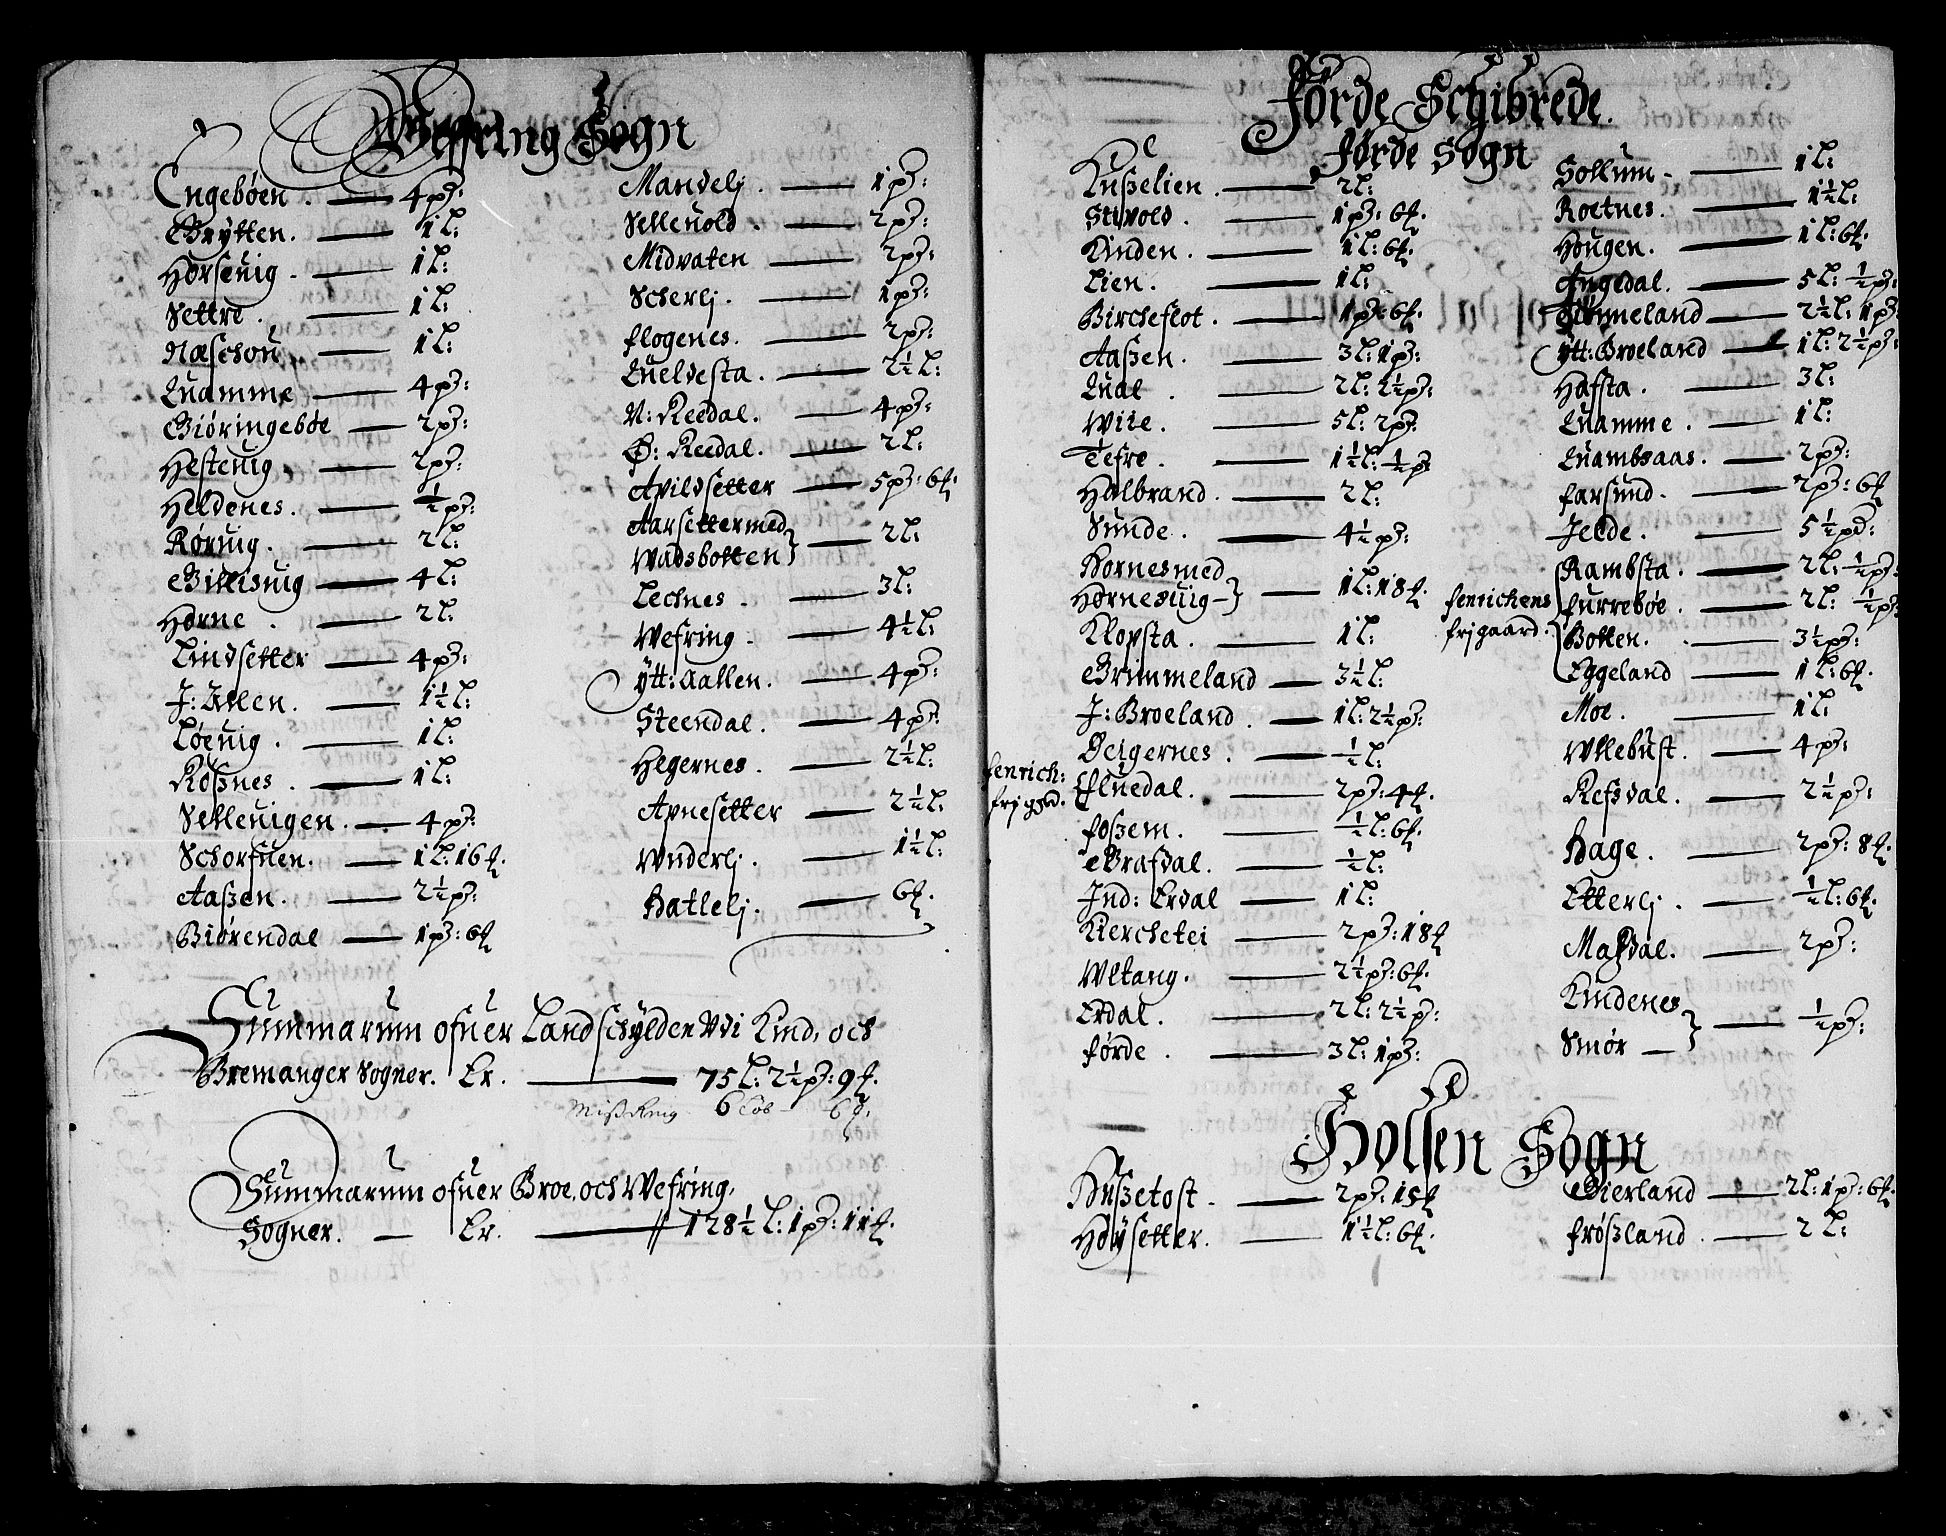 Wefring Sogn
Engebøen. — 4 pz:
Grytten. — 1 L:
Horseuig — 1 L:
Settre. — 1 L:
Næschou — 1 L:
Quamme — 4 pz:
Giøringebøe — 2 pz:
Hesteuig. — 2 pz:
Heldenes. — ½ pz:
Røruig. — 2 L:
Gillisuig — 4 L:
Horne. — 2 L:
Lindsetter — 4 pz:
J: Allen. — 1½ L:
Løeuig. — 1 L:
Roßnes. — 1 L:
Selleuigen. — 4 pz:
Schorfuen. — 1 L: 16 ƒ.
Aaßen. — 2½ pz:
Biørendal — 1 pz: 6 ƒ
Mandelj. — 1 pz:
Selleuold. — 2 pz:
Midvaten — 2 pz:
Scherlj. — 1 pz:
flogenes. — 2 pz:
Quelvesta. — 2½ L:
N: Reedal. — 4 pz:
Ø: Reedal. — 2 L:
Apildsetter — 5 pz: 6 ƒ.
Aarsetter med
Wadsbotten} — 2 L:
Lechnes. — 3 L:
Wefring. — 4½ L:
ytt: Aallen. — 4 pz:
Steendal. — 4 pz:
Hegernes. — 2½ L:
Apnesetter — 2½ L:
Wnderlj. — 1½ L:
Hatlelj. — 6 ƒ.
Summarum ofuer Landschylden Vdi Kind, och
Bremanger Sogner. Er. — 75 L: 2½ pz: 9 ƒ.
6 Løb — 6 ƒ.
Summarum ofuer Broe, och Wefring,
Sogner. — Er. — 128½ L: 1 pz: 11 ƒ.
Førde Schibrede.
Førde Sogn
Kußelien. — 2 L:
Stivold. — 1 pz: 6 ƒ.
Kinden. — 1 L: 6 ƒ.
Lien. — 1 L:
Bircheflot. — 1 pz: 6 ƒ.
Aaßen. — 3 L: 1 pz:
Qual. — 2 L: 1½ pz:
Wiie. — 5 L: 2 pz.
Tefre. — 1½ L: ½ pz
Halbrand. — 2 L:
Sunde. — 4½ pz:
Hornes med
Hornesuig} — 1 L: 18 ƒ.
Klopsta. — 1 L:
Brimmeland — 3½ L:
J: Broeland. — 1 L: 2½ pz:
Øelgernes. — ½ L:
fenrich:
frj gd.
Eluedal. — 2 pz: 4 ƒ.
foßem. — ½ L: 6 ƒ.
Grafdal. — ½ L:
Ind: Erdal — 1 L:
Kierchetei — 2 pz: 18 ƒ
Wltang. — 2½ pz: 6 ƒ.
Erdal. — 2 L: 2½ pz:
førde. — 3 L: 1 pz:
Sollum — 1 L:
Roetnes. — 1½ L:
Hougen. — 1 L: 6 ƒ.
Angedal. — 5 L: ½ pz:
Hummeland — 2½ L: 1 pz:
ytt: Broeland — 1 L: 2½ pz:
Hafsta. — 3 L:
Quamme. — 1 L:
Quambsaas. — 2 pz:
farsund. — 2 pz: 6 ƒ
Jelde. — 5½ pz:
fenrichens
frjgaard.
Rambsta. — 2 L: ½ pz:
furrebøe. — 2 L: ½ pz:
Botten. — 3½ pz:
Eggeland — 1 L: 6 ƒ.
Moe. — 1 L:
Wllebust. — 4 pz:
Refsdal. — 2½ pz:
Hage. — 2 pz: 8 ƒ.
Etterlj. — ½ L: 6 ƒ.
Maßdal. — 2 pz:
Kindenes
Smør} — ½ pz:
Holsen Sogn
Hußetoft. — 2 pz: 15 ƒ
Høysetter. — 1½ L: 6 ƒ.
Gierland — 2 L: 1 pz: 6 ƒ.
frøßland. — 2 L: